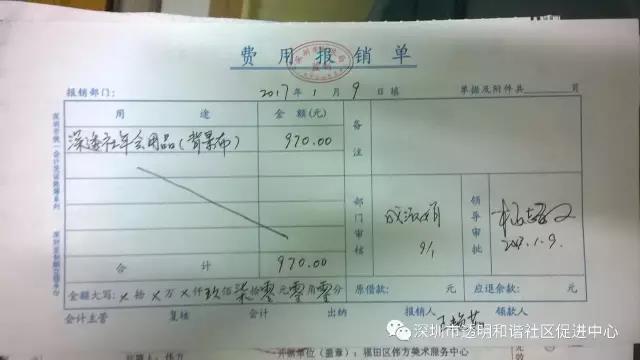 费用报销单
报销部门： 2017年1月9日填 单据及附件共 页
用途 金额(元) 备注
深透社年会用品(背景布) 970.00
部门审核 领导审批
9/1 2017.1.9.
合计 970.00
金额大写：×拾×万×仟玖佰柒拾零元零角零分 原借款： 元 应退余款： 元
会计主管 复核 会计 出纳 报销人 领款人
开票单位（盖章）：福田区伟方美术服务中心
深圳市透明和谐社区促进中心